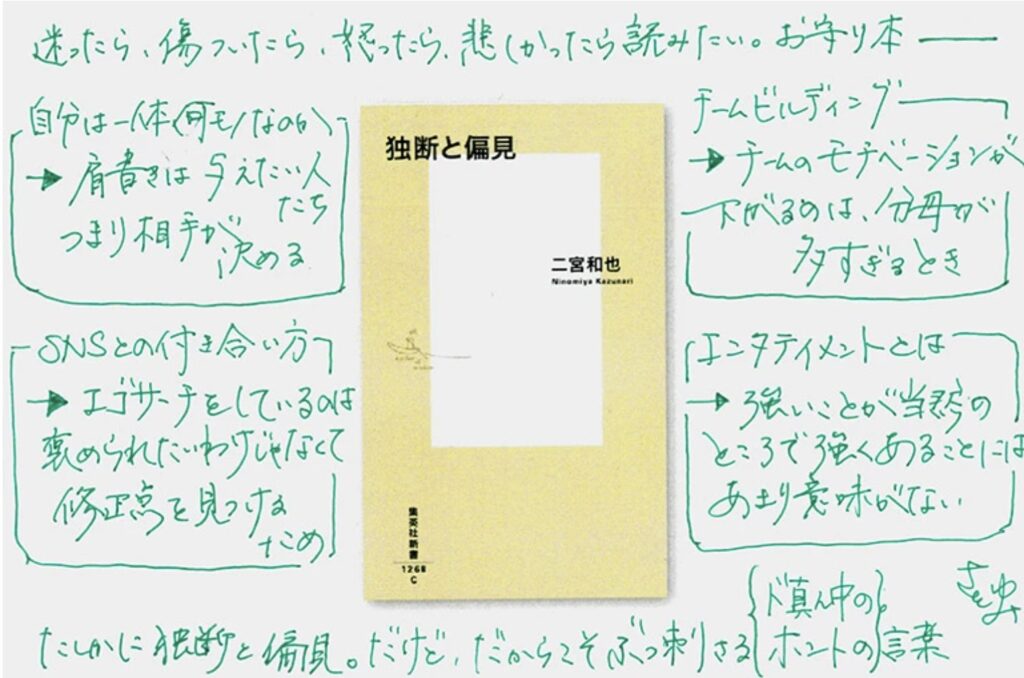 迷ったら、傷ついたら、怒ったら、悲しかったら読みたい。お守り本
自分は一体何モノなのか
→ 肩書きは与えたい人たち
つまり相手が
決める
SNSとの付き合い方
→ エゴサーチをしているのは
褒められたいわけじゃなくて
修正点を見つける
ため
独断と偏見
二宮和也
Ninomiya Kazunari
集英社新書
1268
C
チームビルディング
→ チームのモチベーションが
下がるのは、分母が
多すぎるとき
エンタテイメントとは
→ 強いことが当然の
ところで強くあることには
あまり意味がない
たしかに独断と偏見。だけど、だからこそぶっ刺さる
ド真ん中の
ホントの
言葉
さとゆみ